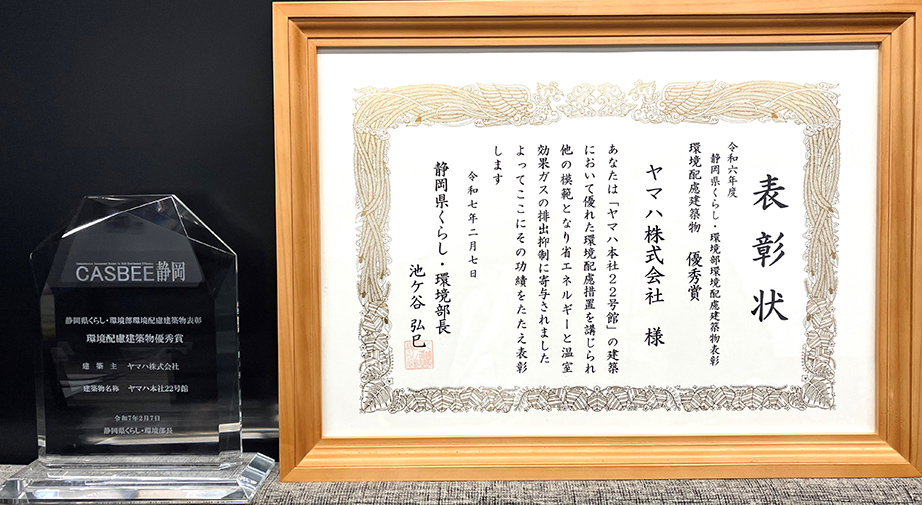 CASBEE静岡
静岡県くらし・環境部環境配慮建築物表彰
環境配慮建築物優秀賞
建築主 ヤマハ株式会社
建築物名称 ヤマハ本社22号館
令和7年2月7日
静岡県くらし・環境部長
表彰状
令和六年度
静岡県くらし・環境部環境配慮建築物表彰
環境配慮建築物 優秀賞
ヤマハ株式会社 様
あなたは「ヤマハ本社22号館」の建築
において優れた環境配慮措置を講じられ
他の模範となり省エネルギーと温室
効果ガスの排出抑制に寄与されました
よってここにその功績をたたえ表彰
します
令和七年二月七日
静岡県くらし・環境部長
池ヶ谷 弘巳